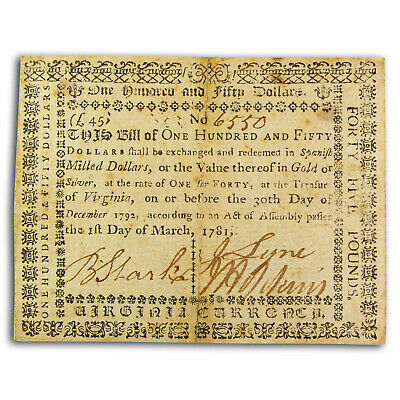 One Hundred and Fifty Dollars.
(£45) No 6550
THIS Bill of ONE HUNDRED AND FIFTY
DOLLARS shall be exchanged and redeemed in Spanish
Milled Dollars, or the Value thereof in Gold or
Silver, at the rate of ONE for FORTY, at the Treasury
of Virginia, on or before the 30th Day of
December 1792, according to an Act of Assembly passed
the 1st Day of March, 1781.
B Stark J Lyne
Hopkins
VIRGINIA CURRENCY.
ONE HUNDRED & FIFTY DOLLARS
FORTY FIVE POUNDS.